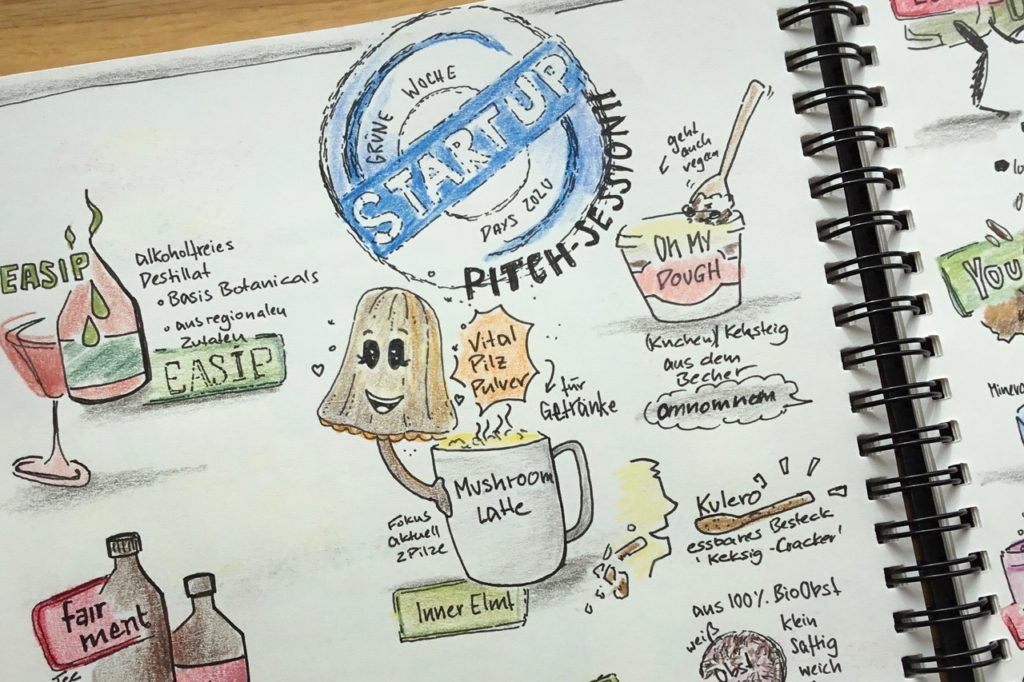 GRÜNE WOCHE
STARTUP
DAYS 2020
PITCH-SESSION II
geht
auch
vegan
OH MY
DOUGH
(Kuchen/Keksteig
aus dem
Becher
omnomnom
EASIP
alkoholfreies
Destillat
• Basis Botanicals
• aus regionalen
Zutaten
EASIP
Vital
Pilz
Pulver
für
Getränke
Mushroom
Latte
Fokus
aktuell
2 Pilze
Inner Elmt
Kulero
essbares Besteck
'Keksig-Cracker'
fair
ment
Tee
aus 100% BioObst
weiß
klein
saftig
weich
Obst
YOU